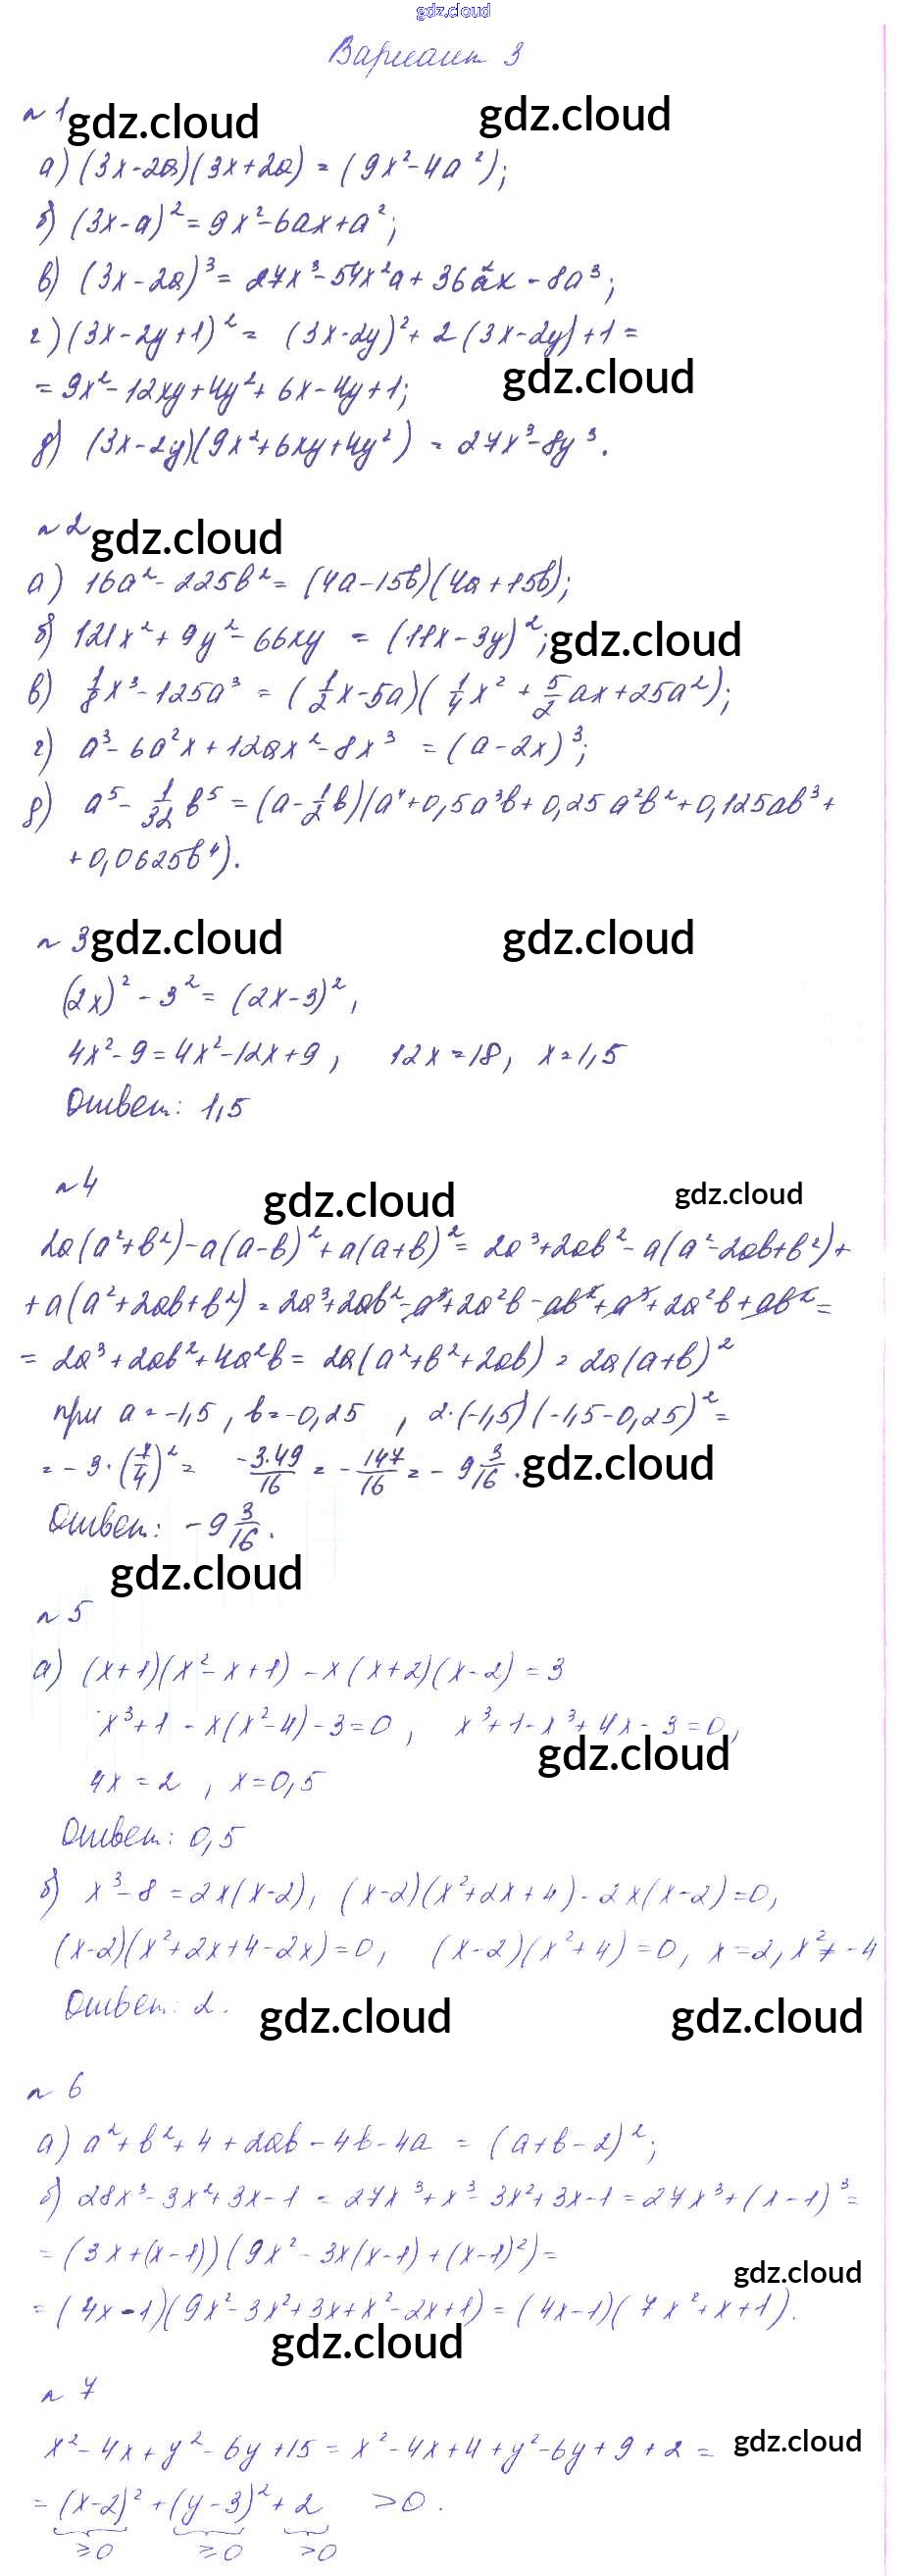 gdz.cloud
Вариант 3
№1 gdz.cloud gdz.cloud
а) (3x-2a)(3x+2a) = (9x²-4a²);
б) (3x-a)² = 9x²-6ax+a²;
в) (3x-2a)³ = 27x³-54x²a+36a²x-8a³;
г) (3x-2y+1)² = (3x-2y)²+2(3x-2y)+1 =
gdz.cloud
= 9x²-12xy+4y²+6x-4y+1;
д) (3x-2y)(9x²+6xy+4y²) = 27x³-8y³.
№2 gdz.cloud
а) 16a²-225b² = (4a-15b)(4a+15b);
б) 121x²+9y²-66xy = (11x-3y)²; gdz.cloud
в) 1/8x³-125a³ = (1/2x-5a)(1/4x²+5/2ax+25a²);
г) a³-6a²x+12ax²-8x³ = (a-2x)³;
д) a⁵-1/32b⁵ = (a-1/2b)(a⁴+0,5a³b+0,25a²b²+0,125ab³+
+0,0625b⁴).
№3 gdz.cloud gdz.cloud
(2x)²-3² = (2x-3)²,
4x²-9=4x²-12x+9, 12x=18, x=1,5
Ответ: 1,5
№4
gdz.cloud gdz.cloud
2a(a²+b²)-a(a-b)²+a(a+b)² = 2a³+2ab²-a(a²-2ab+b²)+
+a(a²+2ab+b²) = 2a³+2ab²-a³+2a²b-ab²+a³+2a²b+ab² =
= 2a³+2ab²+4a²b = 2a(a²+b²+2ab) = 2a(a+b)²
при a=-1,5, b=-0,25, 2·(-1,5)(-1,5-0,25)² =
= -3·(7/4)² = -3·49/16 = -147/16 = -9 3/16. gdz.cloud
Ответ: -9 3/16.
gdz.cloud
№5
а) (x+1)(x²-x+1)-x(x+2)(x-2) = 3
x³+1-x(x²-4)-3=0, x³+1-x³+4x-3=0,
gdz.cloud
4x=2, x=0,5
Ответ: 0,5
б) x³-8=2x(x-2), (x-2)(x²+2x+4)-2x(x-2)=0,
(x-2)(x²+2x+4-2x)=0, (x-2)(x²+4)=0, x=2, x²≠-4
Ответ: 2.
gdz.cloud gdz.cloud
№6
а) a²+b²+4+2ab-4b-4a = (a+b-2)²;
б) 28x³-3x²+3x-1 = 27x³+x³-3x²+3x-1 = 27x³+(x-1)³ =
= (3x+(x-1))(9x²-3x(x-1)+(x-1)²) =
gdz.cloud
= (4x-1)(9x²-3x²+3x+x²-2x+1) = (4x-1)(7x²+x+1).
gdz.cloud
№7
x²-4x+y²-6y+15 = x²-4x+4+y²-6y+9+2 = gdz.cloud
= (x-2)²+(y-3)²+2 >0.
≥0 ≥0 >0